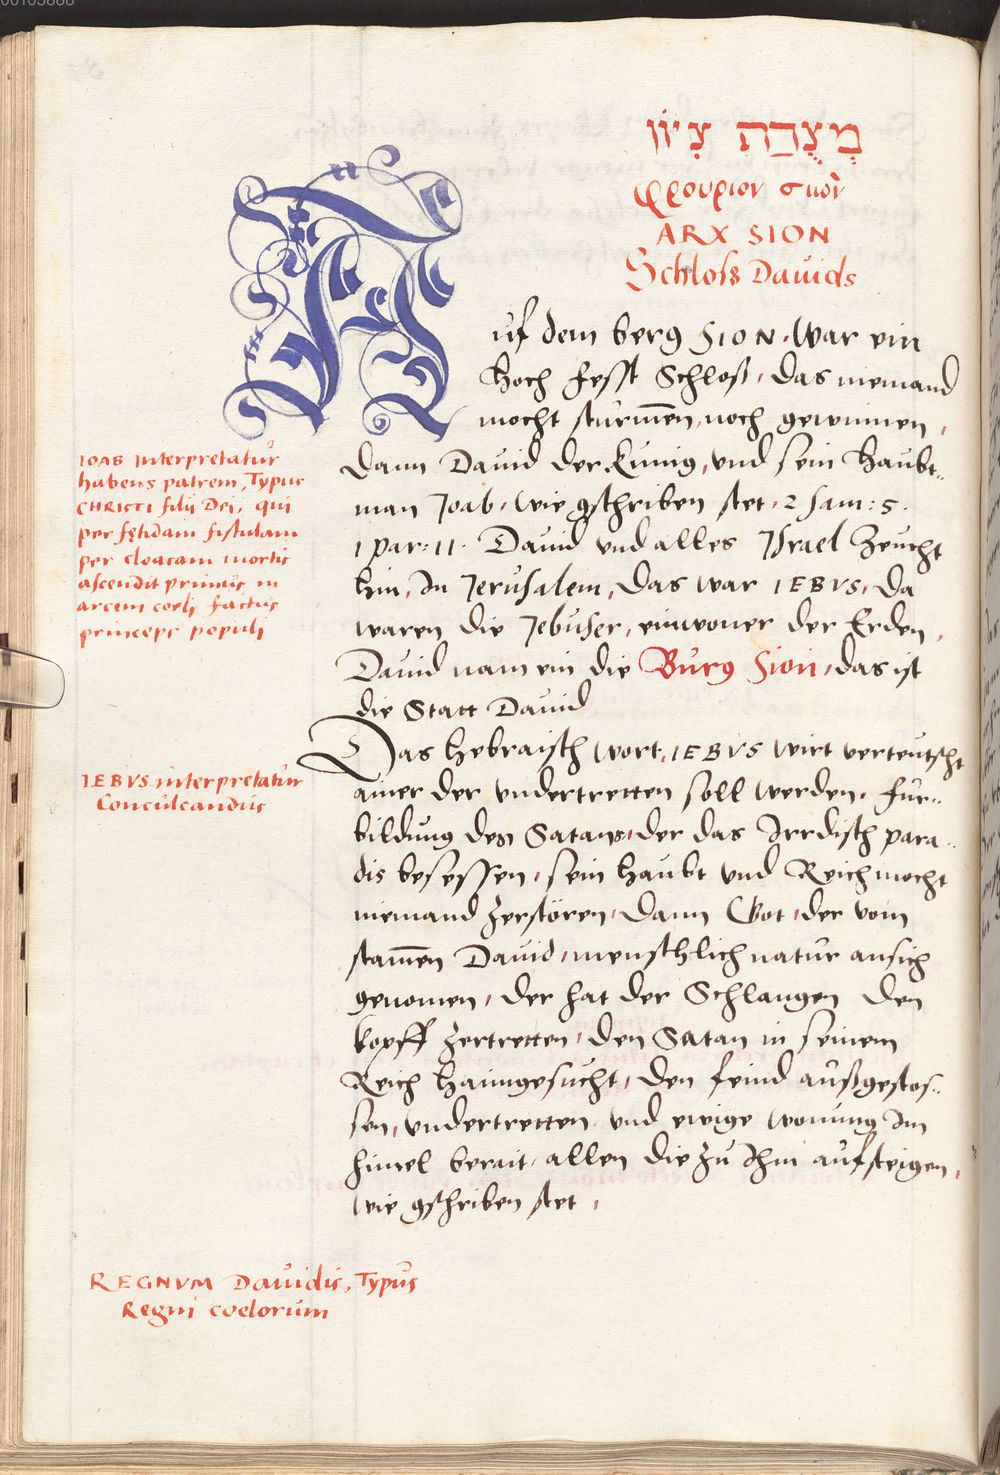 מְצֻדַת צִיּוֹן
φρουριον σιών
ARX SION
Schloss Dauids
Auf dem berg SION. War ein
hoch fesst Schloß, das niemand
mocht stürmen, noch gewinnen,
Dann Dauid der Künig, und sein Haubt„
man Joab, wie gschriben stet. 2 Sam: 5.
1 par: 11. Dauid und alles Israel zeucht
hin, In Jerusalem, das war IEBVS, Da
waren die Jebuser, einwoner der Erden,
Dauid nam ein die Burg Sion, das ist
die Statt Dauid
Das hebraisch Wort, IEBVS wirt verteutscht
ainer der vndertretten soll werden. Für„
bildung des Satans, der das Irrdisch para„
dis besessen, sein haubt und Reich mocht
niemand zerstören, dann Got, der vom
stam̄en Dauid, menschlich natur ansich
genomen, der hat der Schlangen den
kopff zertretten, den Satan in seinem
Reich haimgesucht, den feind außgestos„
sen, vndertretten und ewige wonung Im
himel berait, allen die zu Ihm aufsteigen,
wie gschriben stet,
IOAB Interpretatur
habens patrem, Typus
CHRISTI filij Dei, qui
per fętidam fistulam
per cloacam mortis
ascendit primus in
arcem coeli factus
princeps populi
IEBVS interpretatur
Conculcandus
REGNVM Dauidis, Typus
Regni coelorum